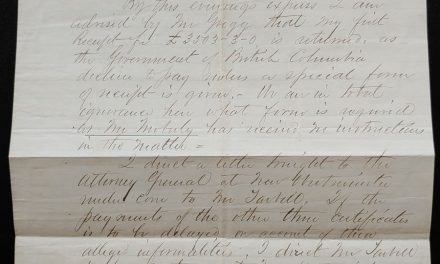 By this evening's express I am
advised by Mr that my first
Receipt for £3503-3-0 is returned, as
the Government of British Columbia
decline to pay unless a special form
of receipt is given. - We are in total
ignorance here what form is required
as Mr Moberly has received no instructions
in the matter =
I direct a letter tonight to the
Attorney General at New Westminster
under cover to Mr Tarbell, If the
payments of the other three certificates
is to be delayed on account of their
allege informalities, I direct Mr Tarbell